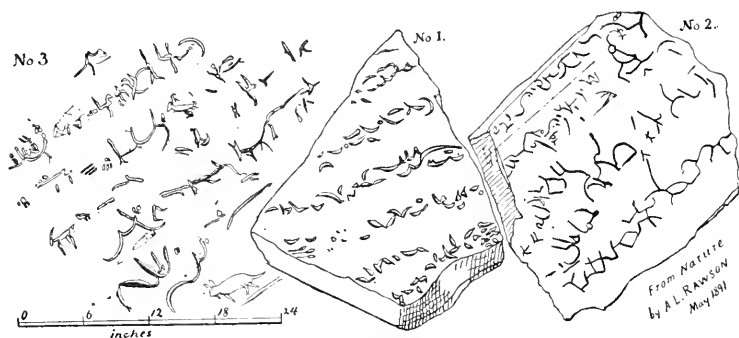 No 3
No 1.
No 2.
0 6 12 18 24
inches
From Nature
by A L. RAWSON
May 1891